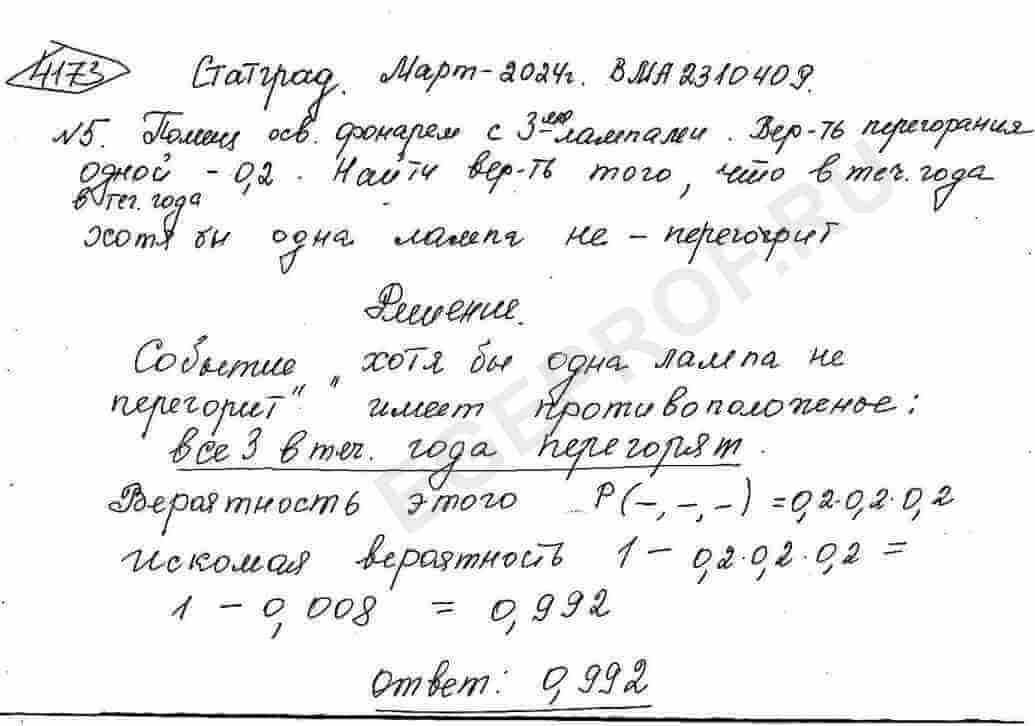 4173
Статград. Март-2024г. ВМА2310409.
№5. Помещ осв. фонарем с 3мя лампами. Вер-ть перегорания
одной - 0,2. Найти вер-ть того, что в теч. года
в теч. года
хотя бы одна лампа не - перегорит
Решение.
Событие „хотя бы одна лампа не
перегорит" имеет противоположенье:
все 3 в теч. года перегорят.
Вероятность этого P(-,-,-) = 0,2·0,2·0,2
Искомая вероятность 1 - 0,2·0,2·0,2 =
1 - 0,008 = 0,992
Ответ: 0,992
EGEPROF.RU